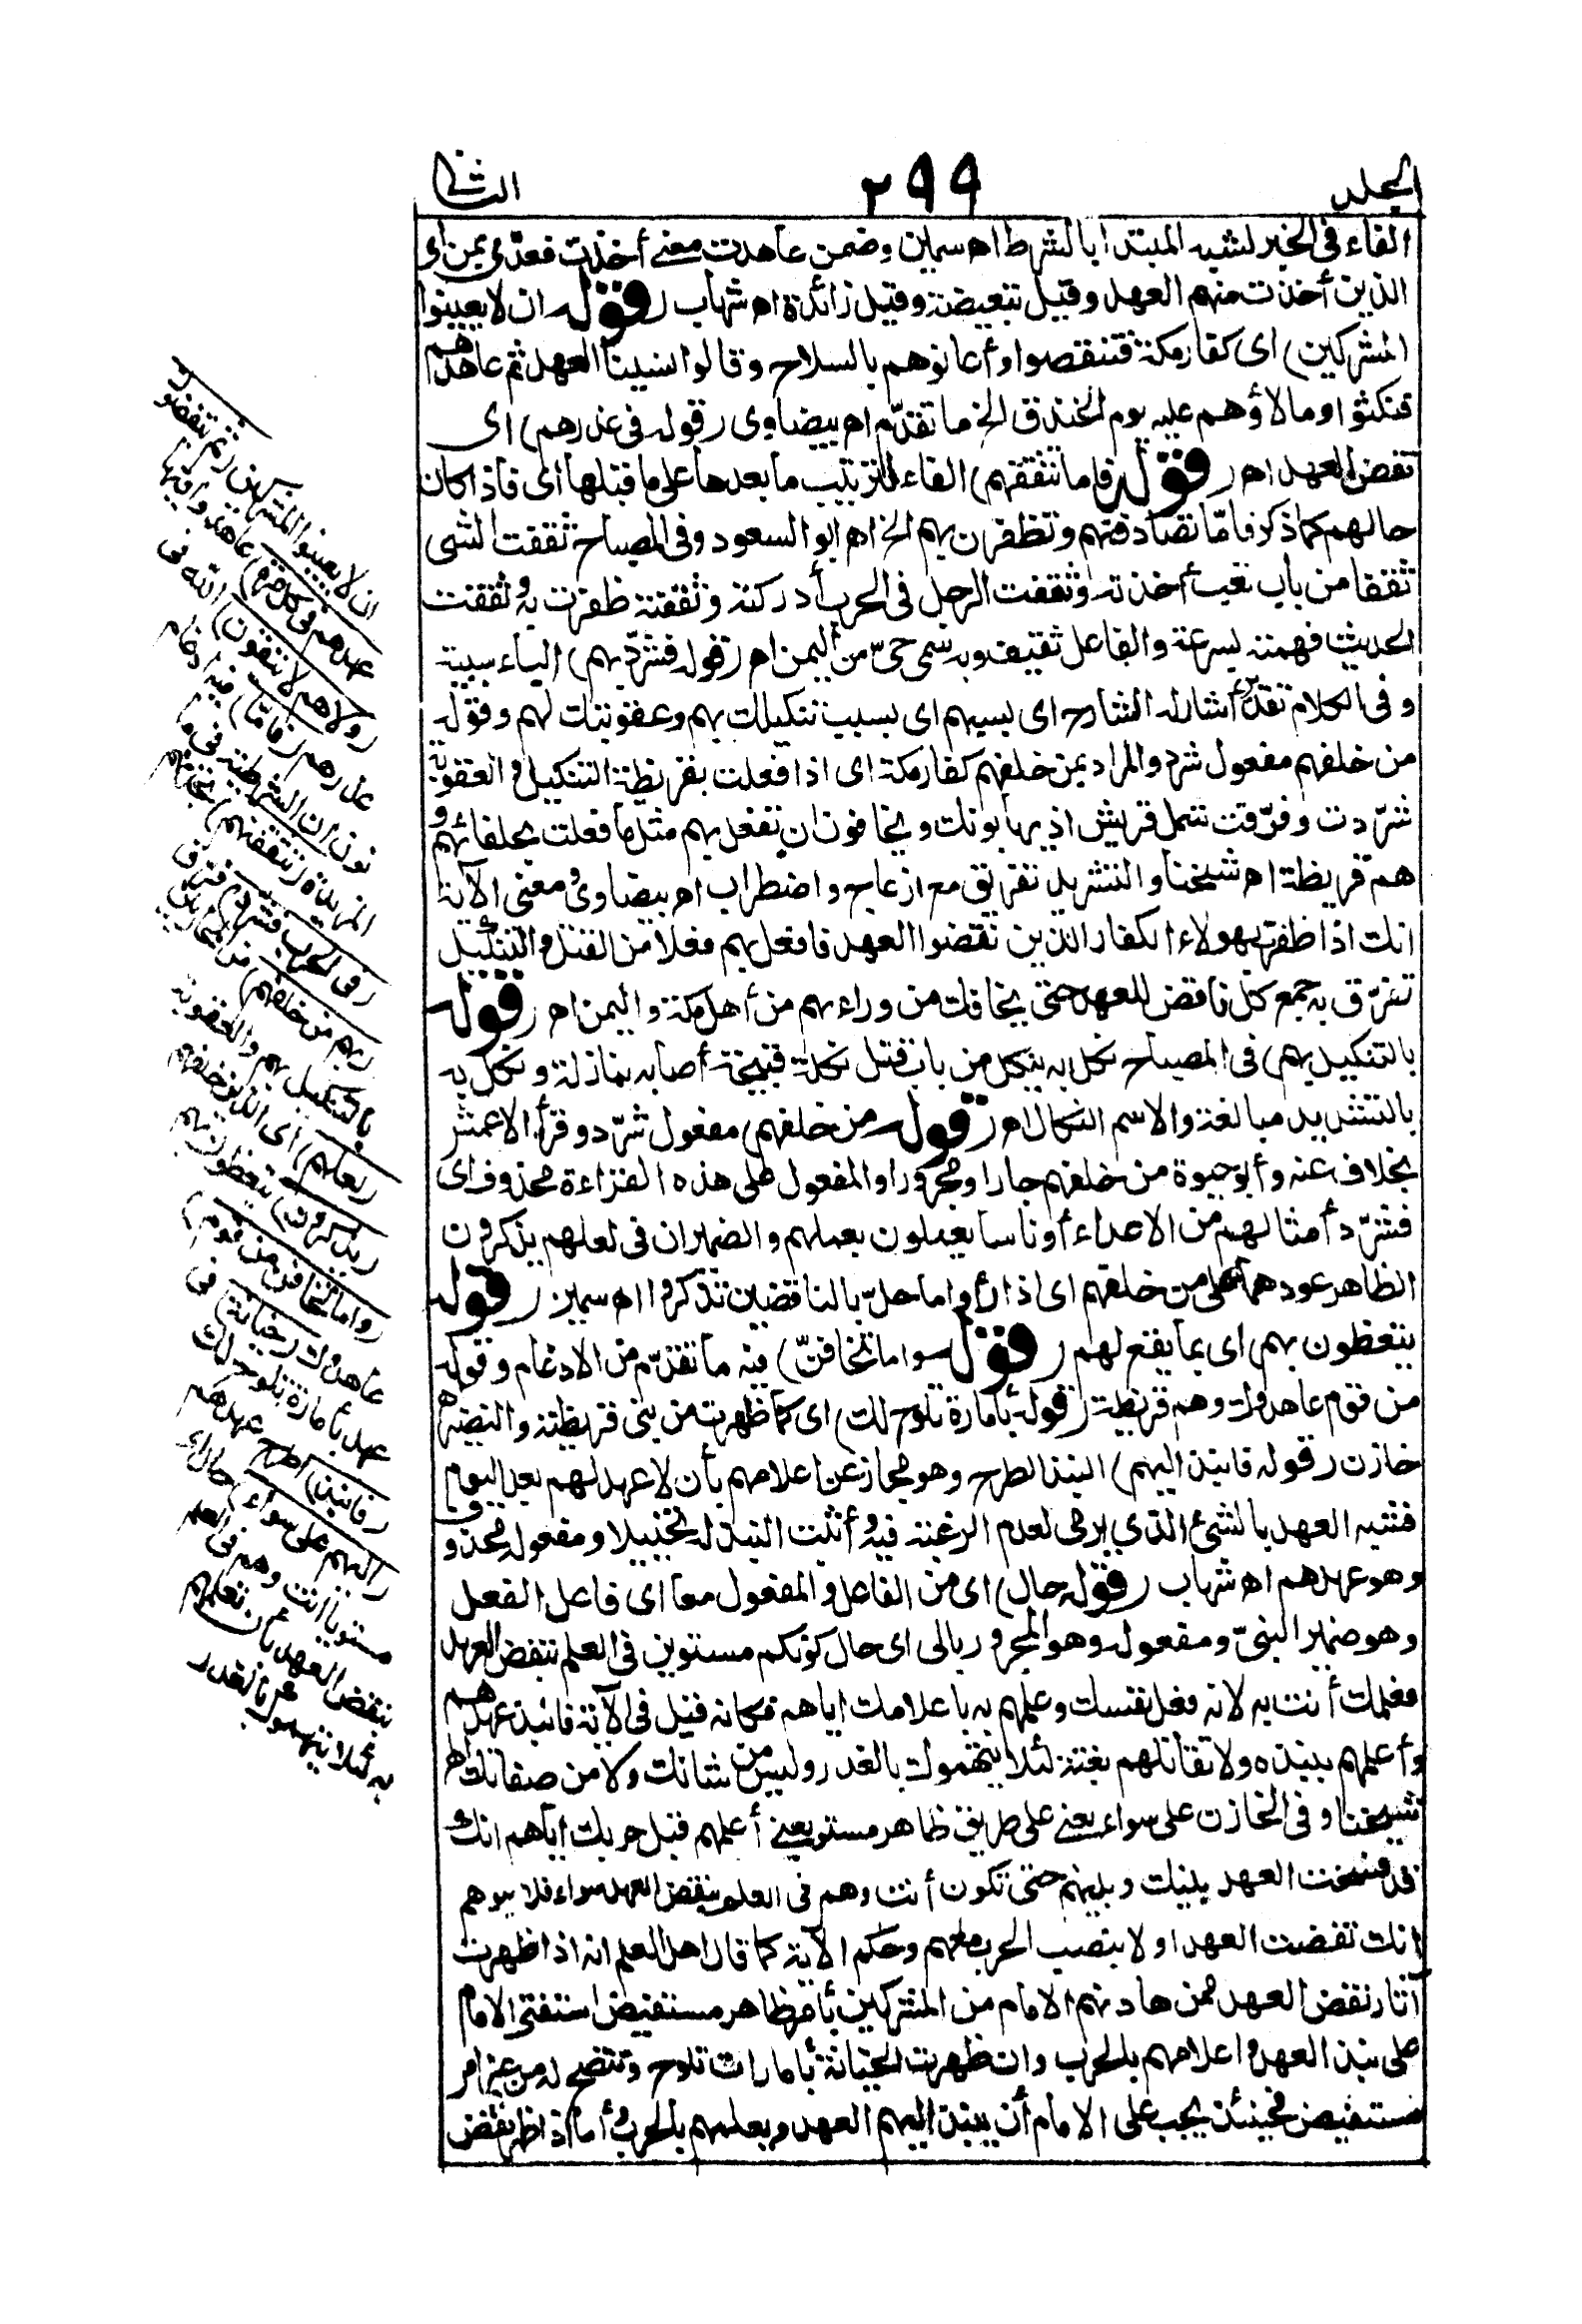 الجلد
٢٩٩
الثانى
الفاء فى الخبر لشبه المبتدا بالشرط اه سمين وضمن عاهدت معنى أخذت فعدّى بمن أى
الذين أخذت منهم العهد وقيل تبعيضة وقيل زائدة اه شهاب (قوله ان لا يعينوا
المشركين) اى كفار مكة فنقضوا وأعانوهم بالسلاح وقالوا نسينا العهد ثم عاهدهم
فنكثوا ومالاؤهم عليه يوم الخندق الخ ما تقدّم اه بيضاوى (قوله فى غدرهم) اى
نقض العهد اه (قوله فاما تثقفنهم) الفاء لترتيب ما بعدها على ما قبلها اى فاذا كان
حالهم كما ذكر فامّا تصادفنهم وتظفرن بهم الخ اه ابو السعود وفى المصباح ثقفت الشى
ثقفا من باب تعب أخذته وثقفت الرجل فى الحرب أدركته وثقفته ظفرت به وثقفت
الحديث فهمته بسرعة والفاعل ثقيف وبه سمى حىّ من اليمن اه (قوله فشرّد بهم) الباء سببية
وفى الكلام تقدير أشار له الشارح اى بسببهم اى بسبب تنكيلك بهم وعقوبتك لهم وقوله
من خلفهم مفعول شرد والمراد بمن خلفهم كفار مكة اى اذا فعلت بقريظة التنكيل والعقوبة
شرّدت وفرّقت شمل قريش اذ يهابونك ويخافون ان تفعل بهم مثل ما فعلت بحلفائهم و
هم قريظة اه شيخنا والتشريد تفريق مع ازعاج واضطراب اه بيضاوى ومعنى الآية
انك اذا ظفرت بهولاء الكفار الذين نقضوا العهد فافعل بهم فعلا من القتل والتنكيل
تفرّق به جمع كل ناقض للعهد حتى يخافك من وراءهم من أهل مكة واليمن اه (قوله
بالتنكيل بهم) فى المصباح نكل به ينكل من باب قتل نكلة قبيحة أصابه بنازلة ونكل به
بالتشديد مبالغة والاسم النكال اه (قوله من خلفهم) مفعول شرّد وقرأ الاعمش
بخلاف عنه وأبو حيوة من خلفهم جارا ومجرورا والمفعول على هذه القراءة محذوف اى
فشرّد أمثالهم من الاعداء أو ناسا يعملون بعملهم والضميران فى لعلهم يذكرون
الظاهر عودهما على من خلفهم اى اذا رأوا ما حلّ بالناقضين تذكروا اه سمين (قوله
يتعظون بهم) اى بما يقع لهم (قوله واما تخافنّ) فيه ما تقدّم من الادغام وقوله
من قوم عاهدوك وهم قريظة (قوله بأمارة تلوح لك) اى كما ظهرت من بنى قريظة والنضير اه
خازن (قوله فانبذ اليهم) النبذ الطرح وهو مجاز عن اعلامهم بأن لا عهد لهم بعد اليوم
فشبه العهد بالشئ الذي يرمى لعدم الرغبة فيه وأثبت النبذ له تخييلا ومفعوله محذوف
وهو عهدهم اه شهاب (قوله حال) اى من الفاعل والمفعول معا اى فاعل الفعل
وهو ضمير النبىّ ومفعوله وهو المجرور بالى اى حال كونكم مستوين فى العلم بنقض العهد
فعلمك أنت به لانه فعل نفسك وعلمهم به باعلامك اياهم فكانه قيل فى الآية فانبذ عهدهم
وأعلمهم بنبذه ولا تقاتلهم بغتة لئلا يتهموك بالغدر وليس من شانك ولا من صفاتك اه
شيخنا وفى الخازن على سواء يعنى على طريق ظاهر مستو يعنى أعلمهم قبل حربك اياهم انك
قد فسخت العهد بينك وبينهم حتى تكون أنت وهم فى العلم بنقض العهد سواء فلا يتوهم
انك نقضت العهد اولا بنصب الحرب معهم وحكم الآية كما قال اهل العلم انه اذا ظهرت
آثار نقض العهد ممن هادنهم الامام من المشركين بأمر ظاهر مستفيض استغنى الامام
على نبذ العهد واعلامهم بالحرب وان ظهرت الخيانة بأمارات تلوح وتتضح له من غير امر
مستفيض فحينئذ يجب على الامام أن ينبذ اليهم العهد ويعلمهم بالحرب وأما اذا ظهر نقض
ان لا يعينوا المشركين (ثم ينقضون
عهدهم فى كل مرة) عاهدوا فيها
(وهم لا يتقون) الله فى
غدرهم (فامّا) فيه ادغام
نون ان الشرطية فى ما
المزيدة (تثقفنهم) تجدنهم
(فى الحرب فشرد) فرق
(بهم من خلفهم) من المحاربين
بالتنكيل بهم والعقوبة
(لعلهم) اى الذين خلفهم
(يذكرون) يتعظون بهم
(واما تخافن من قوم)
عاهدوك (خيانة) فى
عهد بأمارة تلوح لك
(فانبذ) اطرح عهدهم
(اليهم على سواء) حال اى
مستويا أنت وهم فى العلم
بنقض العهد بأن تعلمهم
به لئلا يتهموك بالغدر